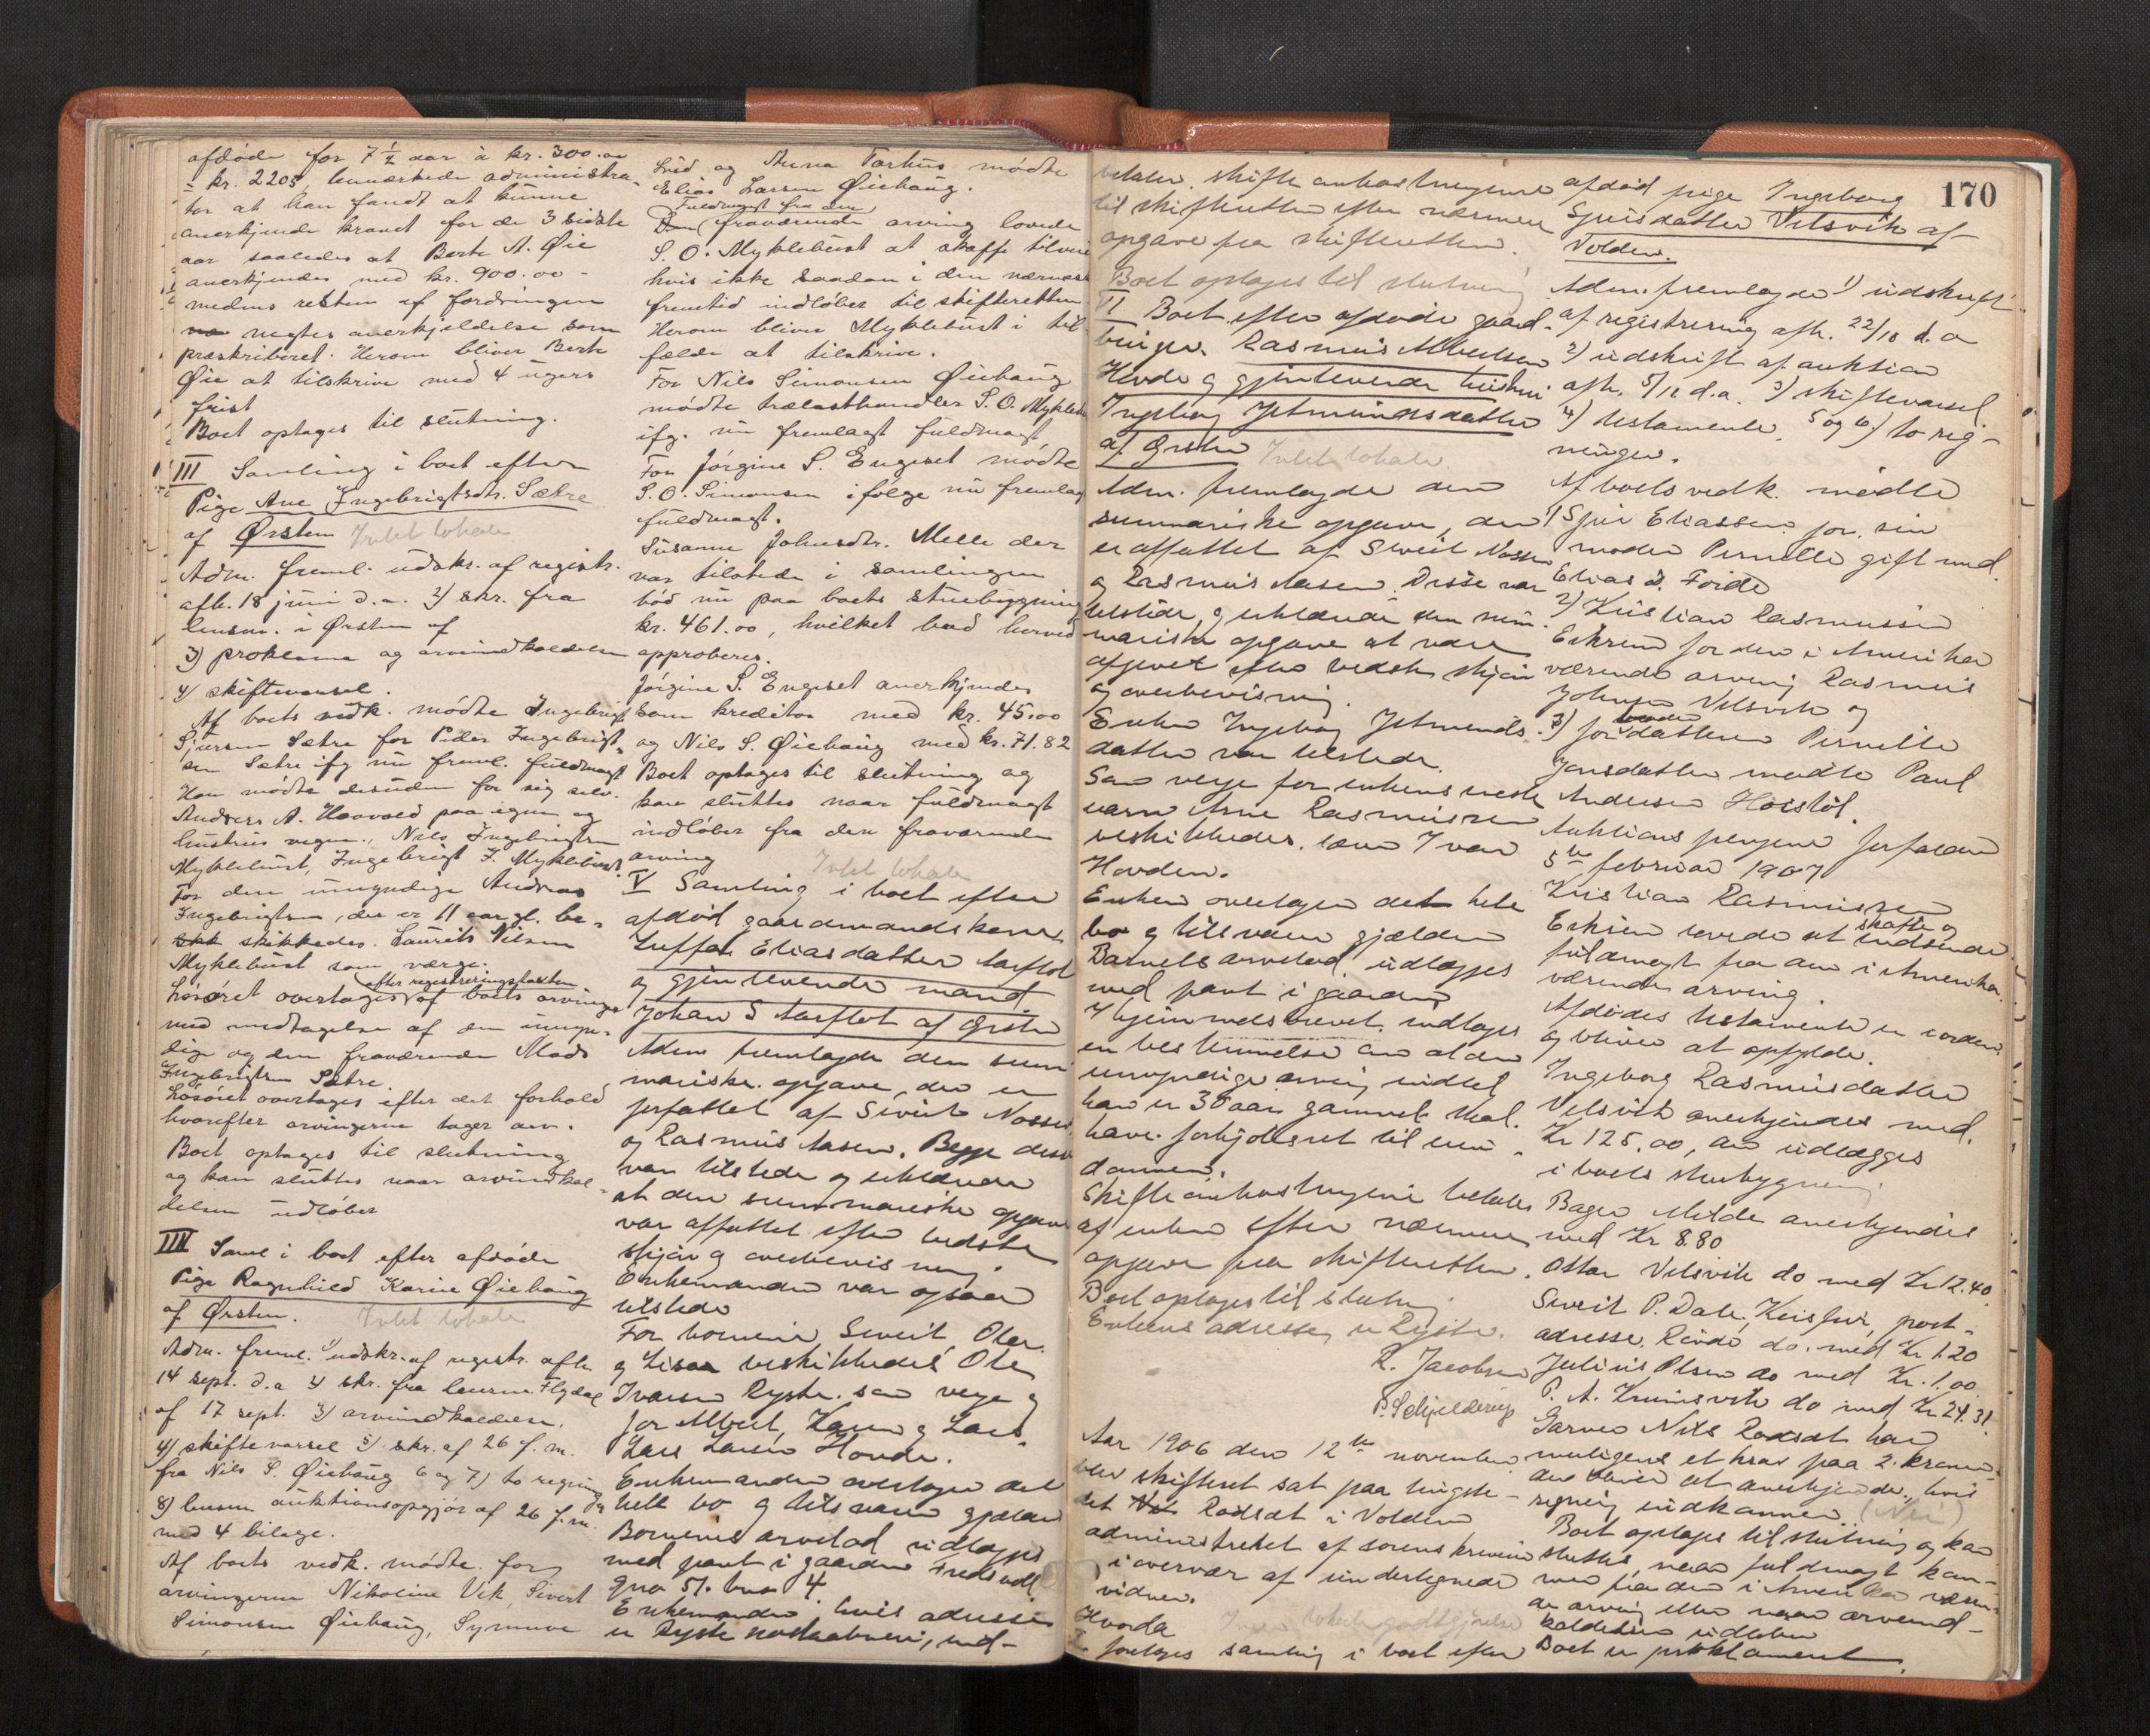 afdøde for 7 1/2 aar à kr. 300.00
÷ kr. 2205, bemærkede administra-
tor at han fandt at kunne
anerkjende kravet for de 3 sidste
aar saaledes at Berte A. Øie
anerkjendes med kr. 900.00 -
medens resten af fordringen
negtes anerkjendelse som
præskriberet. Herom bliver Berte
Øie at tilskrive med 4 ugers
frist
Boet optages til slutning.
III Samling i boet efter
Pige Ane Ingebrigtsdtr. Sætre
af Ørsten Intet lokale
Adm. freml. udskr. af registr.
afh. 18 juni d.a. 2) skr. fra
lensm. i Ørsten af
3) proklama og arveindkaldelse
4) skiftevarsel.
Af boets vedk. mødte Ingebrigt
Sjursen Sætre for Peder Ingebrigt-
sen Sætre ifg nu freml. fuldmagt
Han mødte desuden for sig selv.
Anders A. Haavold paa egne og
hustrus vegne, Nils Ingebrigtsen
Myklebust, Ingebrigt J. Myklebust.
For den umyndige Andreas
Ingebrigtsen, der er 11 aar gl. be-
skikkedes Laurits Nilsen
Myklebust som værge.
efter registreringstaxten
Løsøret overtages af boets arvinger
med undtagelse af den umyn-
dige og den fraværende Mads
Ingebrigtsen Sætre.
Løsøret overtages efter det forhold
hvorefter arvingerne tager arv.
Boet optages til slutning
og kan sluttes naar arveindkal-
delsen udløber
IIII Saml i boet efter afdøde
Pige Ragnhild Karine Øiehaug
af Ørsten. Intet lokale
Adm. freml. 1) udskr. af registr. afh.
14 sept. d.a 2) skr. fra lensm. Flydal
af 17 sept. 3) arveindkaldelse.
4) skiftevarsel 5) skr. af 26 f.m.
fra Nils S. Øiehaug 6 og 7) to regning
8) lensm auktionsopgjør af 26 f.m.
med 4 bilage.
Af boets vedk. mødte for
arvingerne Nikoline Vik, Sivert
Simonsen Øiehaug, Synnøve
Lid og Anna Torhus mødte
Elias Larsen Øiehaug.
Fuldmagt fra den
fraværende arving lovede
S. O. Myklebust at skaffe tilveie
hvis ikke saadan i den nærmeste
fremtid indløber til skifteretten
Herom bliver Myklebust i til-
fælde at tilskrive.
For Nils Simonsen Øiehaug
mødte trælasthandler S. O. Myklebust
ifg. nu fremlagt fuldmagt
For Jørgine S. Engeset mødte
S. O. Simonsen ifølge nu fremlagt
fuldmagt.
Susanne Johnsdtr. Melle der
var tilstede i samlingen
bød nu paa boets stuebygning
kr. 461.00, hvilket bud herved
approberes.
Jørgine S. Engeset anerkjendes
som kreditor med kr. 45.00
og Nils S. Øiehaug med kr. 71.82
Boet optages til slutning og
kan sluttes naar fuldmagt
indløber fra den fraværende
arving
Intet lokale
V Samling i boet efter
afdød gaardmandskone
Eliasdatter Aarflot
og gjenlevende mand
Johan S Aarflot af Ørsten
Adm fremlagde den sum
mariske opgave der er
forfattet af Siveit Nosse
og Rasmus Aasen. Begge disse
var tilstede og erklærede
at den summariske opgave
var affattet efter bedste
skjøn og overbevisning.
Enkemanden var ogsaa
tilstede
For børnene Siveit, Ole
og Lisa beskikkedes Ole
Ivarsen Ryste som verge og
for Albert, Karen og Lars
Lars Larsen Hovde.
Enkemanden overtager det
hele bo og tilsvarer gjælden
Børnenes arvelod udlægges
med pant i gaarden
gno 51. bno 4.
Enkemanden hvis adresse
er Ryste postaabneri, ud-
betaler skifteomkostningerne
til skifteretten efter nærmere
opgave fra skifteretten.
Boet optages til slutning
VI Boet efter afdøde gaard-
bruger Rasmus Albertsen
Hovde og gjenlevende hustru
Ingeborg Jetmundsdatter
af Ørsten Intet lokale
Adm. fremlagde den
summariske opgave, der
er affattet af Siveit Nosse
og Rasmus Aasen. Disse var
tilstede, og erklærede den sum-
mariske opgave at være
afgivet efter bedste skjøn
og overbevisning.
Enken Ingeborg Jetmunds-
datter var tilstede.
Som verge for enkens eneste
barn Arne Rasmussen
beskikkedes Ivar
Hovden.
Enken overtager det hele
bo og tilsvarer gjælden
Barnets arvelod udlægges
med pant i gaarden
I hjemmelsbrevet indtages
en bestemmelse om at den
umyndige arving indtil
han er 30 aar gammel skal
have forkjøbsret til eien-
dommen.
Skifteomkostningerne betales
af enken efter nærmere
opgave fra skifteretten.
Boet optages til slutning
Enkens adresse er Ryste.
R. Jacobsen
P. Schjelderup
Aar 1906 den 12te november
blev skifteret sat paa tingste-
det Rødsæt i Volden
administreret af sorenskriveren
i overvær af undertegnede
vidner.
Hvorda Intet lokalegodtgjørelse
I. foretoges samling i boet efter
170
afdød pige Ingeborg
Sjursdatter Velsvik af
Volden.
Adm. fremlagde 1) udskrift
af registrering afh. 22/10 d.a
2) udskrift af auktion
afh. 5/11 d.a. 3) skiftevarsel
4) testamente, 5 og 6) to reg-
ninger.
Af boets vedk. mødte
1) Sjur Eliassen for sin
moder Pernille gift med
Elias S. Foide
2) Kristian Rasmussen
Eiksund for den i Amerika
værende arving Rasmus
Johnsen Velsvik og
3) for datteren Pernille
Jonsdatter mødte Paul
Andersen Høistøl.
Auktionspengene forfalder
5te februar 1907
Kristian Rasmussen
Eiksun lovede at skaffe og indsende
fuldmagt fra den i Amerika
værende arving.
Afdødes testamente er i orden
og bliver at opfylde.
Ingeborg Rasmusdatter
Velsvik anerkjendes med
Kr 125,00, der udlægges
i boets stuebygning
Bager Melde anerkjendes
med Kr 8.80
Ottar Velsvik do med Kr 12.40
Siveit P. Dale, post-
adresse do. med Kr 1.20
Julius Olsen do med Kr. 1.00
P. A. do med Kr 24.31
Garver Nils Rødsæt har
muligens et krav paa 2 kroner
der bliver at anerkjende, hvis
regning indkommer (Nei)
Boet optages til slutning og kan
sluttes naar fuldmagt kom-
mer fra den i Amerika væren-
de arving eller naar arveind-
kaldelsen udløber
Boet er proklameret.